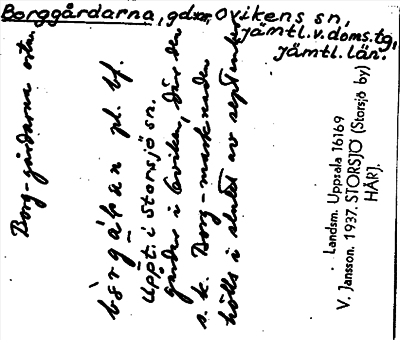 Borggårdarna, gdar, Ovikens sn,
Jämtl. v. doms. tg,
Jämtl. län.
Borg-gårdarna
pl. bf.
Uppt. i Storsjö sn.
gårdar i Oviken, där den
s.k. Borg-marknaden
hölls i slutet av september
Landsm. Uppsala 16169
V. Jansson. 1937. STORSJÖ (Storsjö by)
HÄRJ.